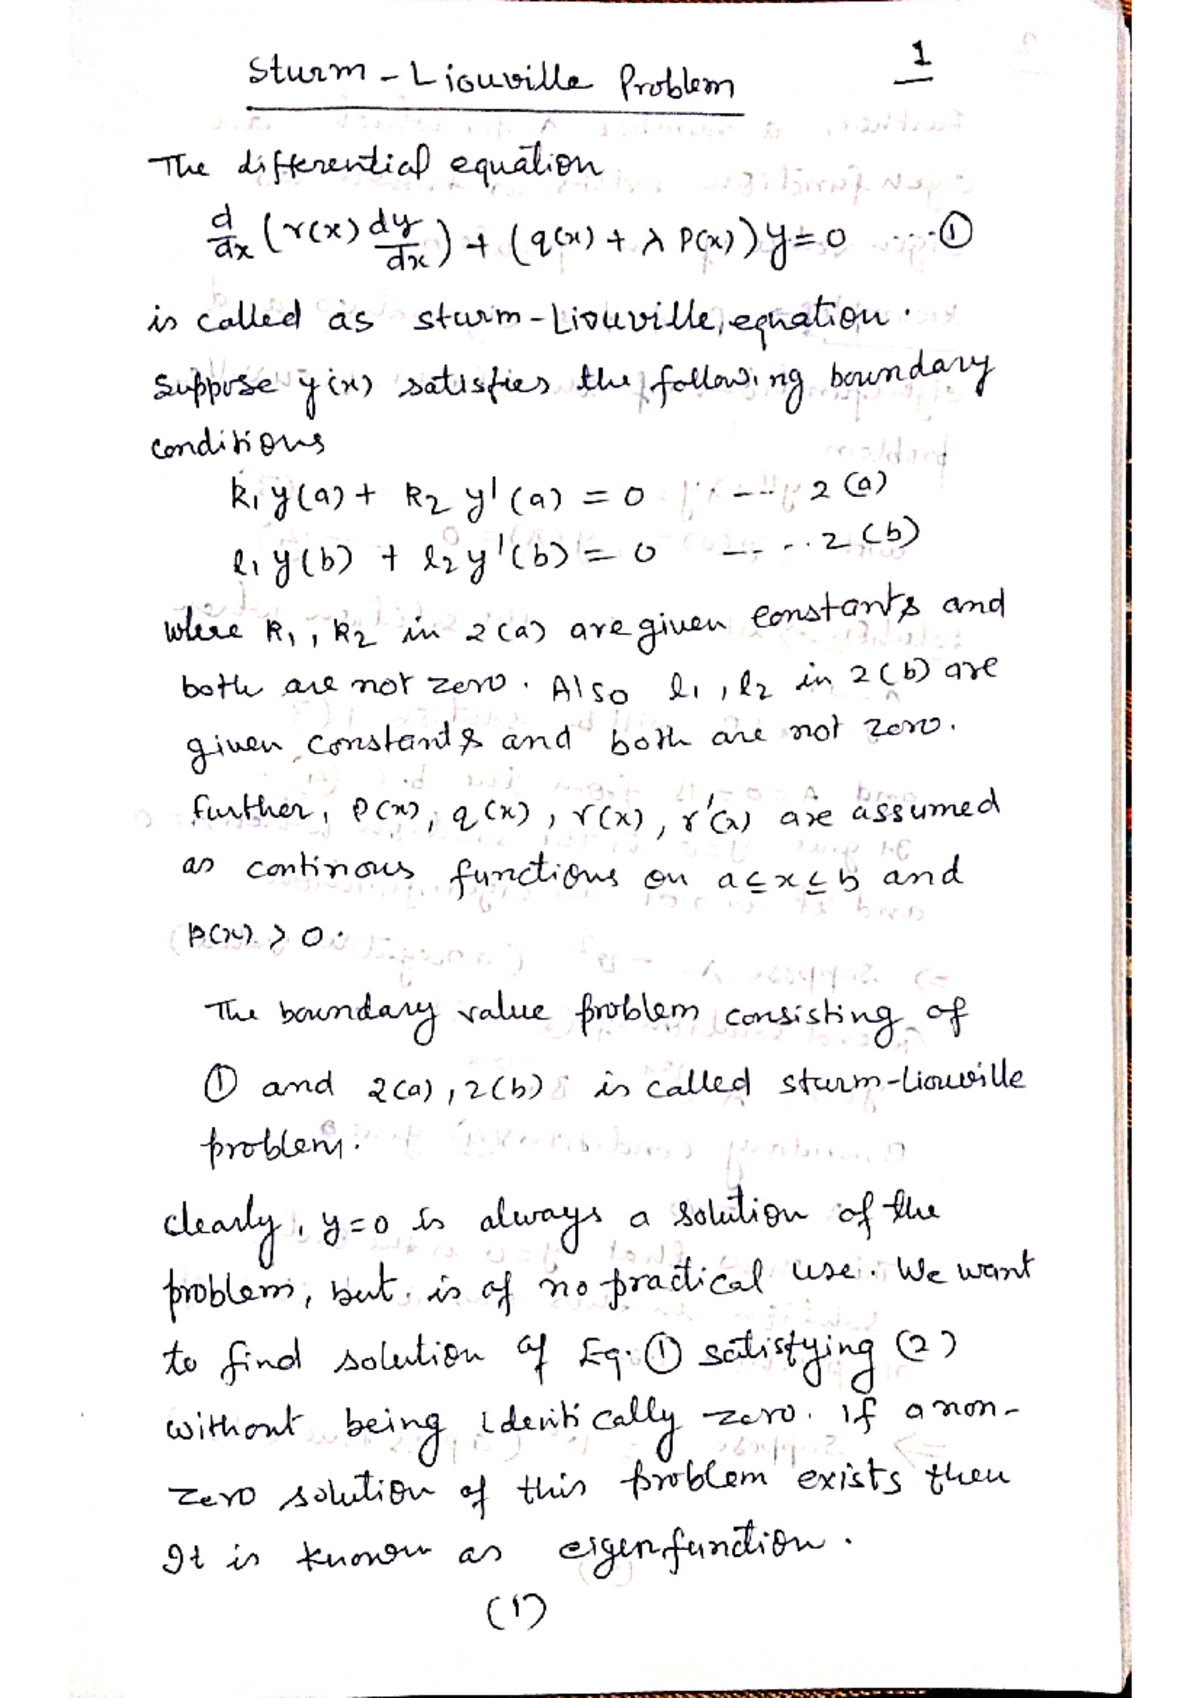 Sturm-Liouville Problem
1
The differential equation
d/dx (r(x) dy/dx) + (q(x) + λ P(x)) y = 0 ...①
is called as Sturm-Liouville equation.
Suppose y(x) satisfies the following boundary
conditions
k₁y(a) + k₂ y'(a) = 0 ---- 2(a)
l₁y(b) + l₂y'(b) = 0 ---..2(b)
where k₁, k₂ in 2(a) are given constants and
both are not zero. Also l₁, l₂ in 2(b) are
given constants and both are not zero.
further, P(x), q(x), r(x), r'(x) are assumed
as continous functions on a≤x≤b and
P(x) > 0.
The boundary value problem consisting of
① and 2(a), 2(b) is called Sturm-Liouville
problem.
clearly, y=0 is always a solution of the
problem, but is of no practical use. We want
to find solution of Eq. ① satisfying (2)
without being identically zero. If a non-
zero solution of this problem exists then
It is known as eigenfunction.
(1)